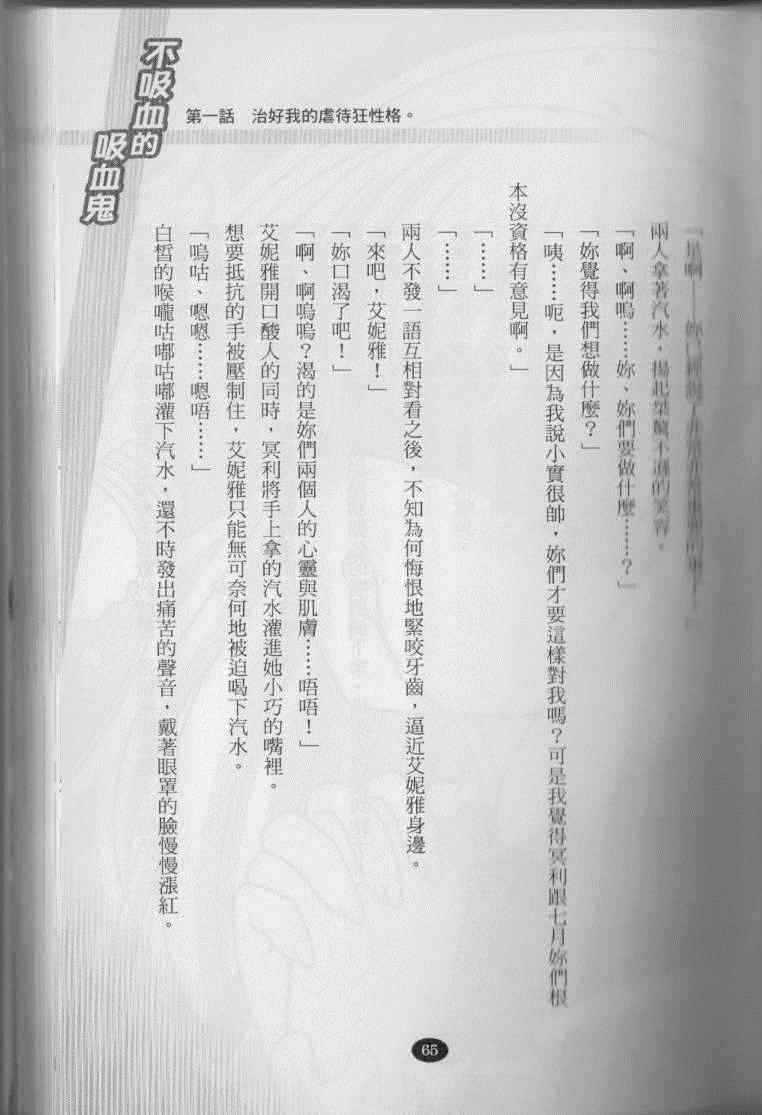 不吸血的
吸血鬼
第一話　治好我的虐待狂性格。
「是啊——
兩人拿著汽水，揚起桀驁不遜的笑容。
「啊、啊嗚……妳、妳們要做什麼……？」
「妳覺得我們想做什麼？」
「咦……呃，是因為我說小實很帥，妳們才要這樣對我嗎？可是我覺得冥利跟七月妳們根
本沒資格有意見啊。」
「……」
「……」
兩人不發一語互相對看之後，不知為何悔恨地緊咬牙齒，逼近艾妮雅身邊。
「來吧，艾妮雅！」
「妳口渴了吧！」
「啊、啊嗚嗚？渴的是妳們兩個人的心靈與肌膚……唔唔！」
艾妮雅開口酸人的同時，冥利將手上拿的汽水灌進她小巧的嘴裡。
想要抵抗的手被壓制住，艾妮雅只能無可奈何地被迫喝下汽水。
「嗚咕、嗯嗯……嗯唔……」
白皙的喉嚨咕嘟咕嘟灌下汽水，還不時發出痛苦的聲音，戴著眼罩的臉慢慢漲紅。
65